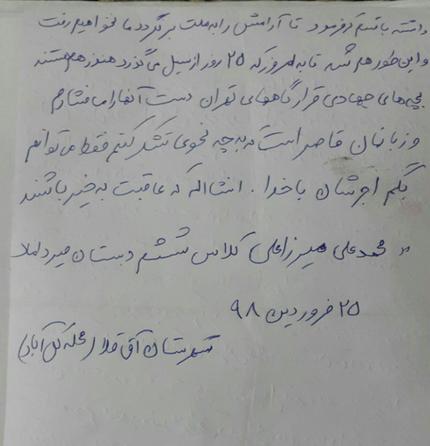 داشته باشیم و فرمود تا آرامش را به ملت برنگردد ما نخواهیم رفت
و این طور هم شد تا به امروز که ۲۵ روز از سیل می گذرد هنوز هم هستند
بچه های جهادی قرارگاههای تهران دست آنها را می فشارم
و زبانمان قاصر است که به چه نحوی تشکر کنم فقط می توانم
بگم اجرشان با خدا. انشااله که عاقبت به خیر باشند
محمد علی میرزاعلی کلاس ششم دبستان
۲۵ فروردین ۹۸
شهرستان آق قلا (محله گل آباد)